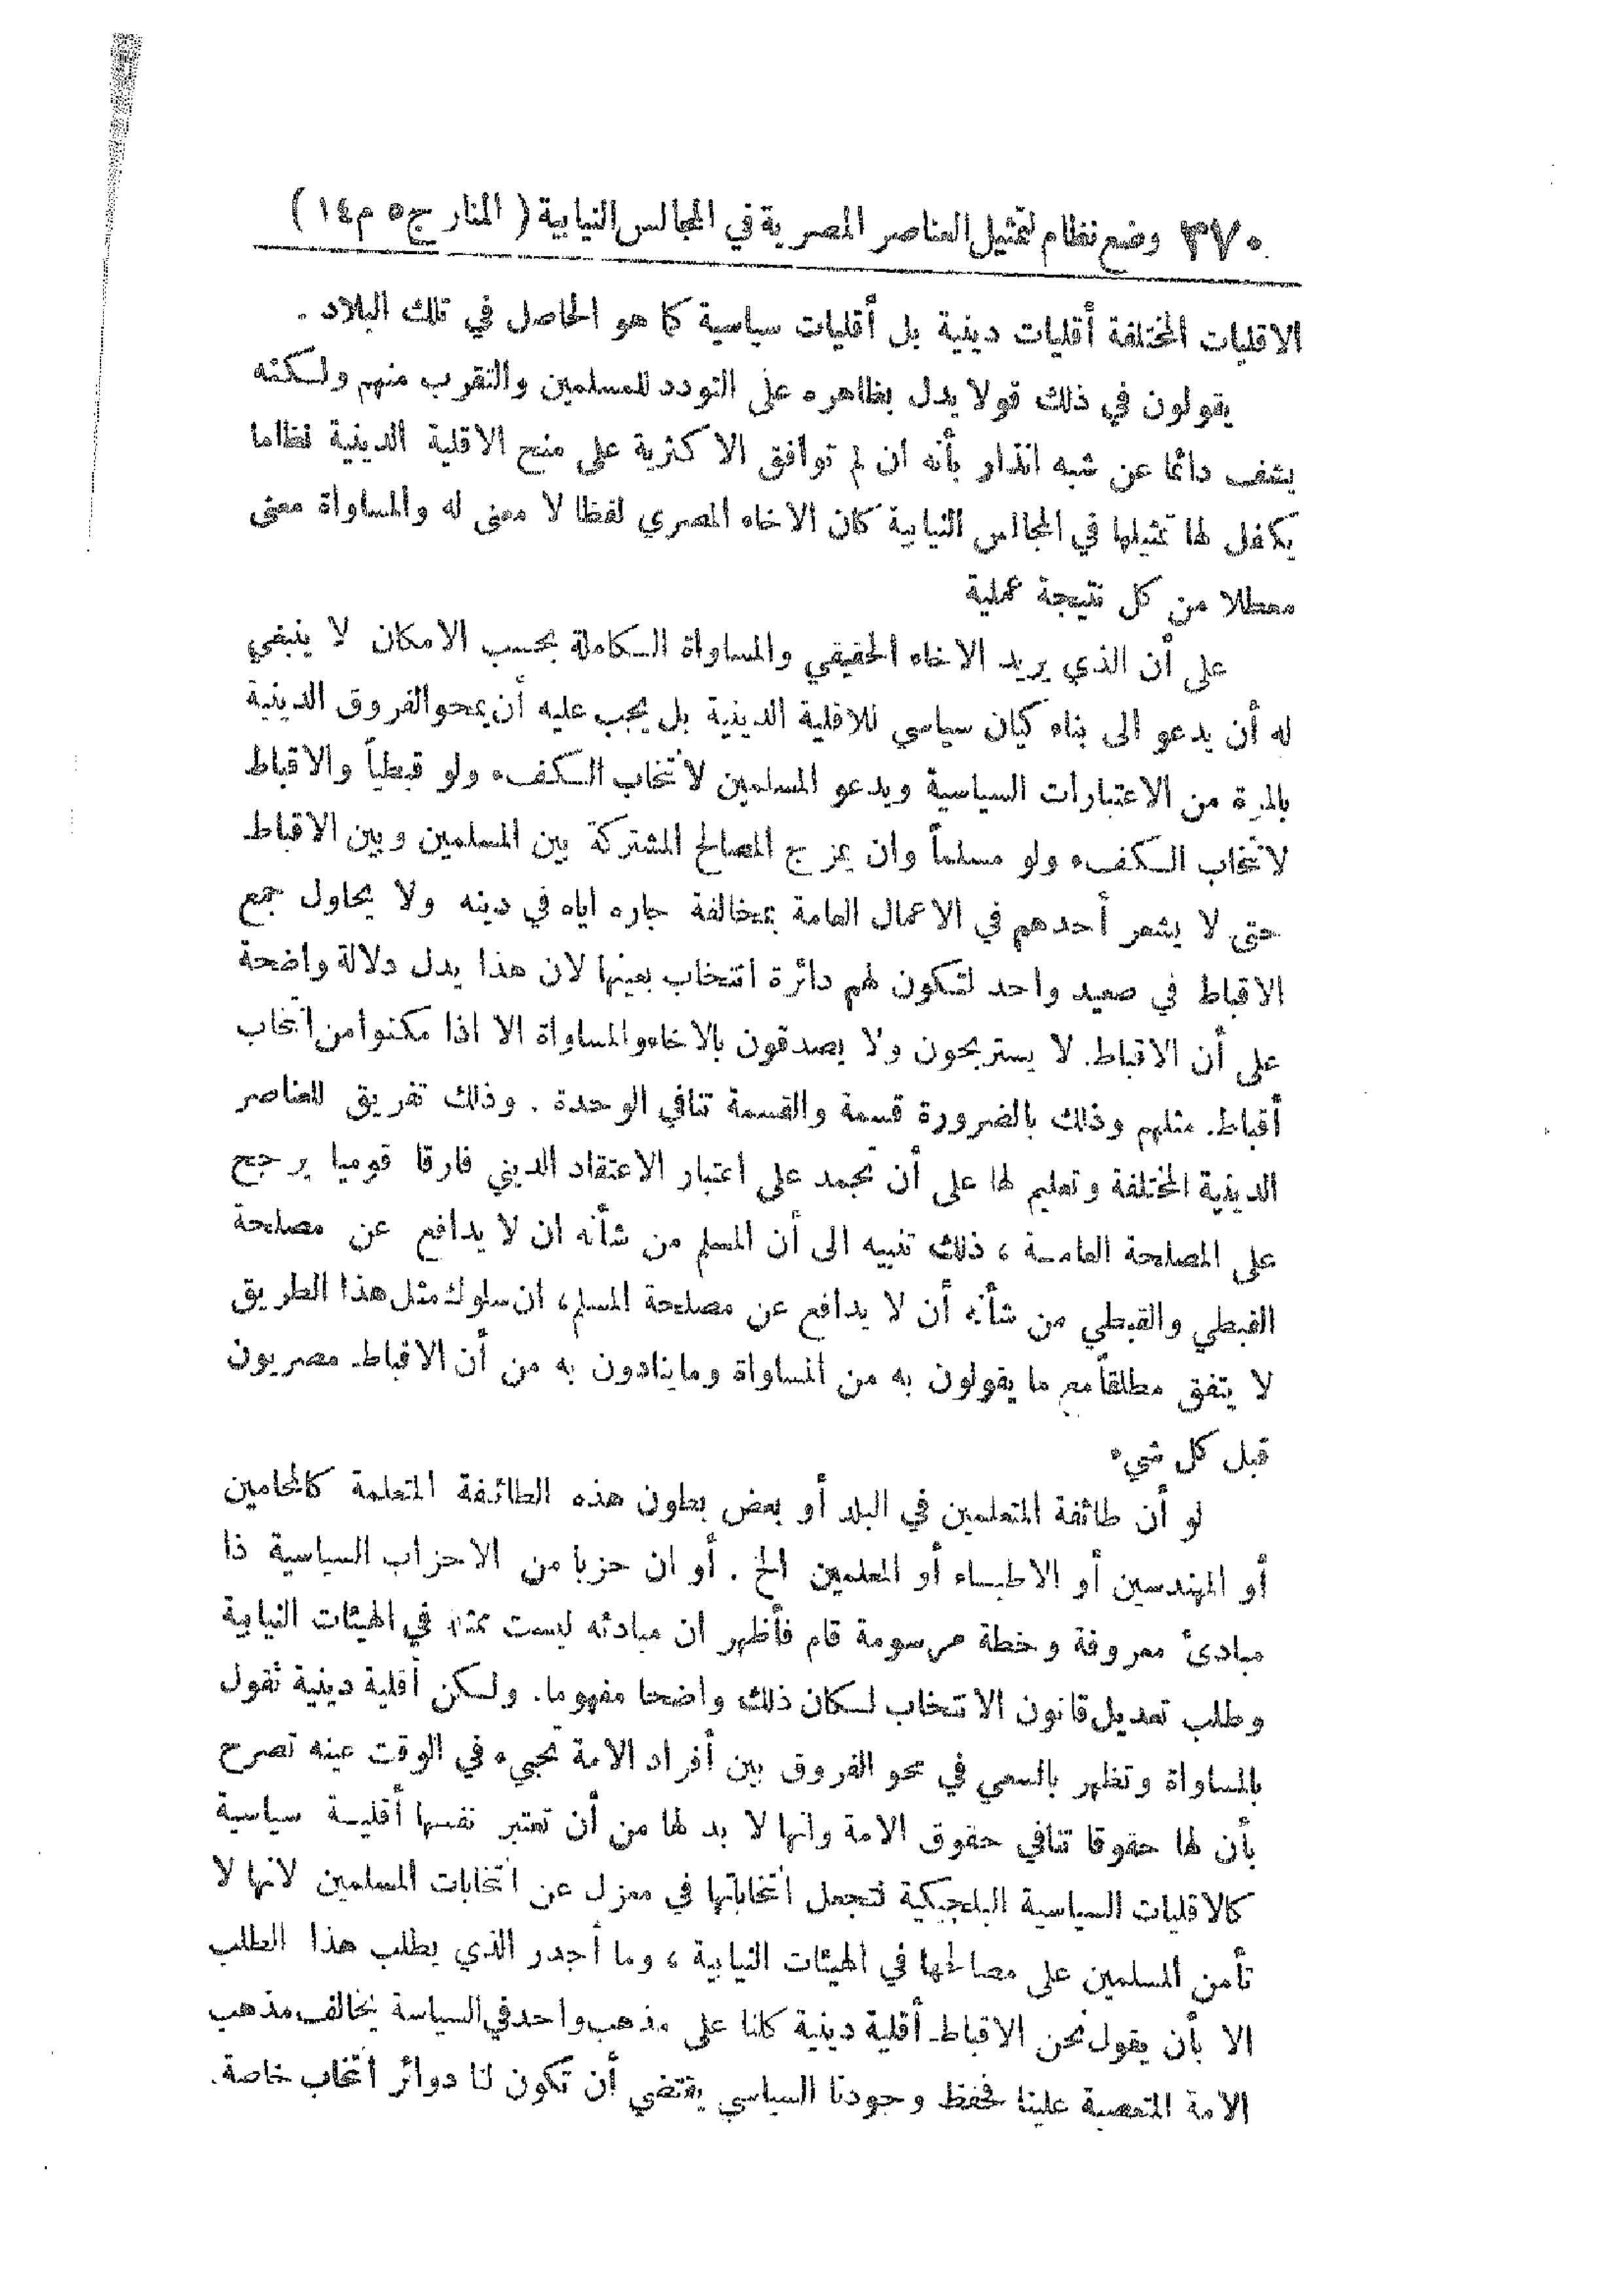 ٣٧٠ وضع نظام لتمثيل العناصر المصرية في المجالس النيابية ( المنار ج٥ م١٤ )
الاقليات المختلفة أقليات دينية بل أقليات سياسية كما هو الحاصل في تلك البلاد .
يقولون في ذلك قولا يدل بظاهره على التودد للمسلمين والتقرب منهم ولكنه
يشف دائما عن شبه انذار بأنه ان لم توافق الاكثرية على منح الاقلية الدينية نظاما
يكفل لها تمثيلها في المجالس النيابية كان الاخاء المصري لفظا لا معنى له والمساواة معنى
معطلا من كل نتيجة عملية
على أن الذي يريد الاخاء الحقيقي والمساواة الكاملة بحسب الامكان لا ينبغي
له أن يدعو الى بناء كيان سياسي للاقلية الدينية بل يجب عليه أن يمحو الفروق الدينية
بالمرة من الاعتبارات السياسية ويدعو المسلمين لانتخاب الكفء ولو قبطياً والاقباط
لانتخاب الكفء ولو مسلماً وان يمزج المصالح المشتركة بين المسلمين وبين الاقباط
حتى لا يشعر أحدهم في الاعمال العامة بمخالفة جاره اياه في دينه ولا يحاول جمع
الاقباط في صعيد واحد لتكون لهم دائرة انتخاب بعينها لان هذا يدل دلالة واضحة
على أن الاقباط لا يستريحون ولا يصدقون بالاخاء والمساواة الا اذا مكنوا من انتخاب
أقباط مثلهم وذلك بالضرورة قسمة والقسمة تنافي الوحدة . وذلك تفريق للعناصر
الدينية المختلفة وتعليم لها على أن تجمد على اعتبار الاعتقاد الديني فارقا قوميا يرجح
على المصلحة العامة ، ذلك تنبيه الى أن المسلم من شأنه ان لا يدافع عن مصلحة
القبطي والقبطي من شأنه أن لا يدافع عن مصلحة المسلم، ان سلوك مثل هذا الطريق
لا يتفق مطلقاً مع ما يقولون به من المساواة وما ينادون به من أن الاقباط مصريون
قبل كل شيء
لو أن طائفة المتعلمين في البلد أو بعض بطون هذه الطائفة المتعلمة كالمحامين
أو المهندسين أو الاطباء أو المعلمين الخ . أو ان حزبا من الاحزاب السياسية ذا
مبادئ معروفة وخطة مرسومة قام فأظهر ان مبادئه ليست ممثلة في الهيئات النيابية
وطلب تعديل قانون الانتخاب لكان ذلك واضحا مفهوما. ولكن أقلية دينية تقول
بالمساواة وتظهر بالسعي في محو الفروق بين أفراد الامة تجيء في الوقت عينه تصرح
بأن لها حقوقا تنافي حقوق الامة وانها لا بد لها من أن تعتبر نفسها أقلية سياسية
كالاقليات السياسية البلجيكية فتجعل انتخاباتها في معزل عن انتخابات المسلمين لانها لا
تأمن المسلمين على مصالحها في الهيئات النيابية ، وما أجدر الذي يطلب هذا الطلب
الا بأن يقول نحن الاقباط أقلية دينية كلنا على مذهب واحد في السياسة يخالف مذهب
الامة المتعصبة علينا فحفظ وجودنا السياسي يقتضي أن تكون لنا دوائر انتخاب خاصة.